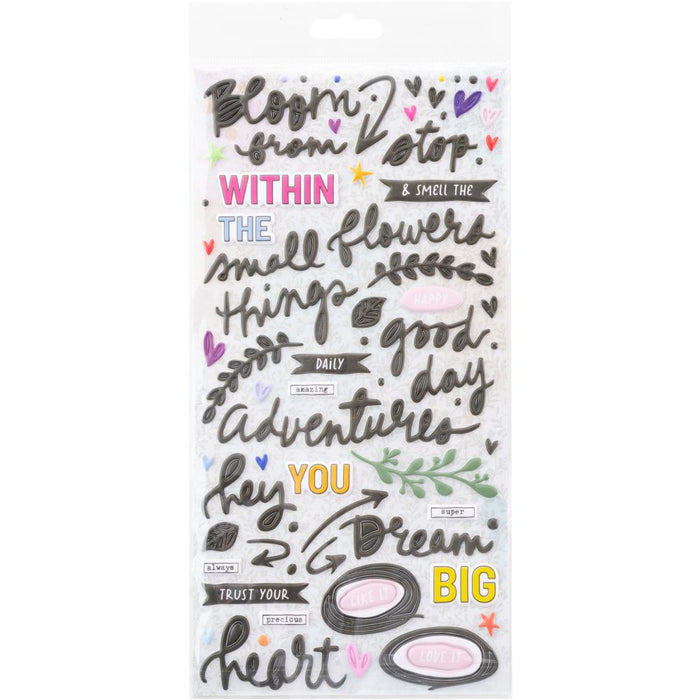 Bloom
from
stop
WITHIN
& SMELL THE
THE
flowers
small
things
HAPPY
good
DAILY
day
amazing
Adventures
hey
YOU
super
Dream
always
BIG
TRUST YOUR
LIKE IT
precious
heart
LOVE IT